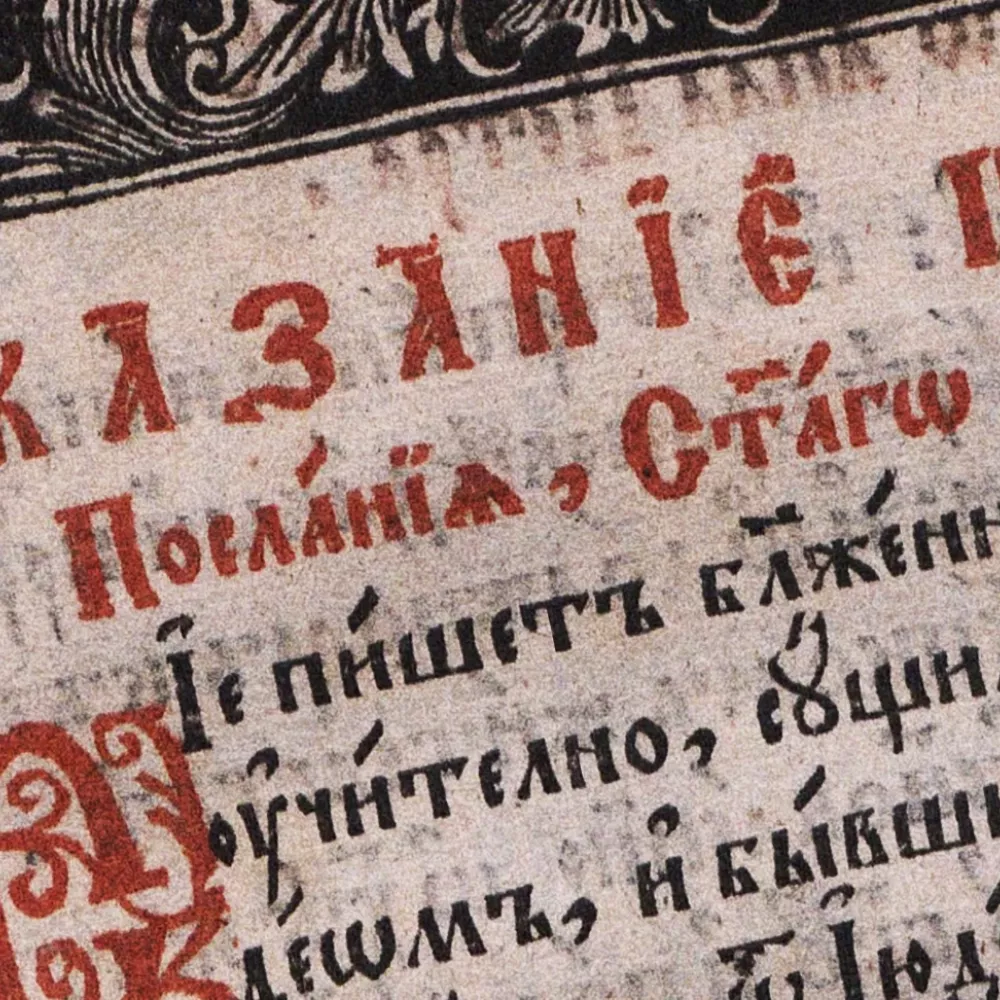 КАЗА́НЇЕ҆ П
Посла́нїѧ, Ст҃а́гѡ
І҆е пи́шетъ бл҃же́нн
оу҆чи́телно, сꙋщи
деѡмъ, и҆ бы́вши
ѿ І҆юд